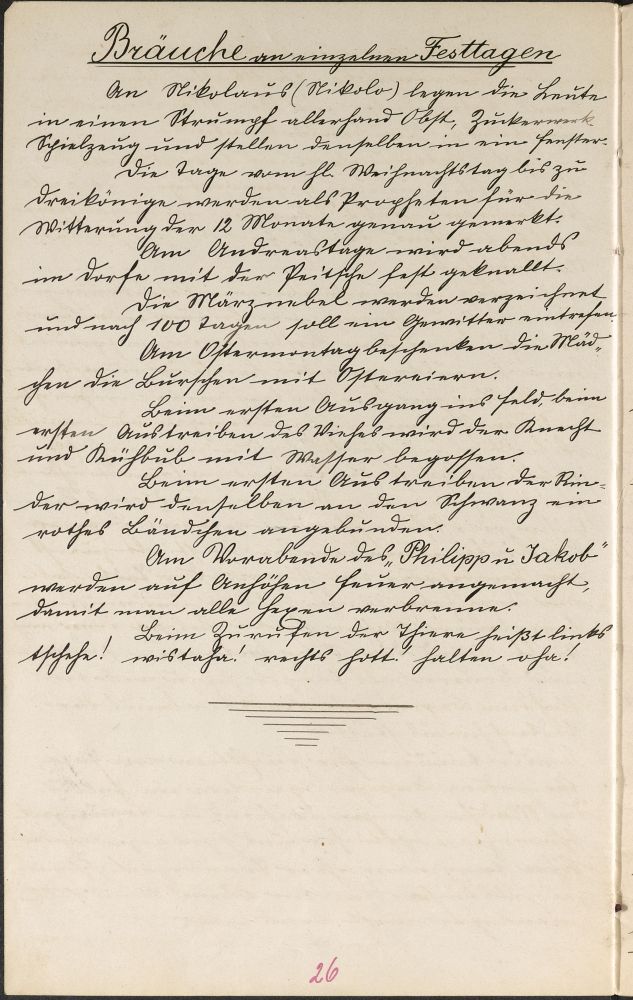 Bräuche an einzelnen Festtagen
An Nikolaus (Nikolo) legen die Leute
in einen Strumpf allerhand Obst, Zuckerwerk
Spielzeug und stellen denselben in ein Fenster.
Die Tage vom hl. Weihnachtstag bis zu
Dreikönige werden als Propheten für die
Witterung der 12 Monate genau gemerkt.
Am Andreastage wird abends
im Dorfe mit der Peitsche fest geknallt.
Die Märznebel werden verzeichnet
und nach 100 Tagen soll ein Gewitter eintrefen.
Am Ostermontag beschenken die Mäd„
chen die Burschen mit Ostereiern.
Beim ersten Ausgang ins Feld, beim
ersten Austreiben des Viehes wird der Knecht
und Kühbub mit Wasser begossen.
Beim ersten Austreiben der Rin„
der wird denselben an den Schwanz ein
rothes Bändchen angebunden.
Am Vorabende des „Philipp u Jakob"
werden auf Anhöhen Feuer angemacht,
damit man alle Hexen verbrenne.
Beim Zurufen der Thiere heißt links
tschehe! wistaha! rechts hott! halten oha!
26